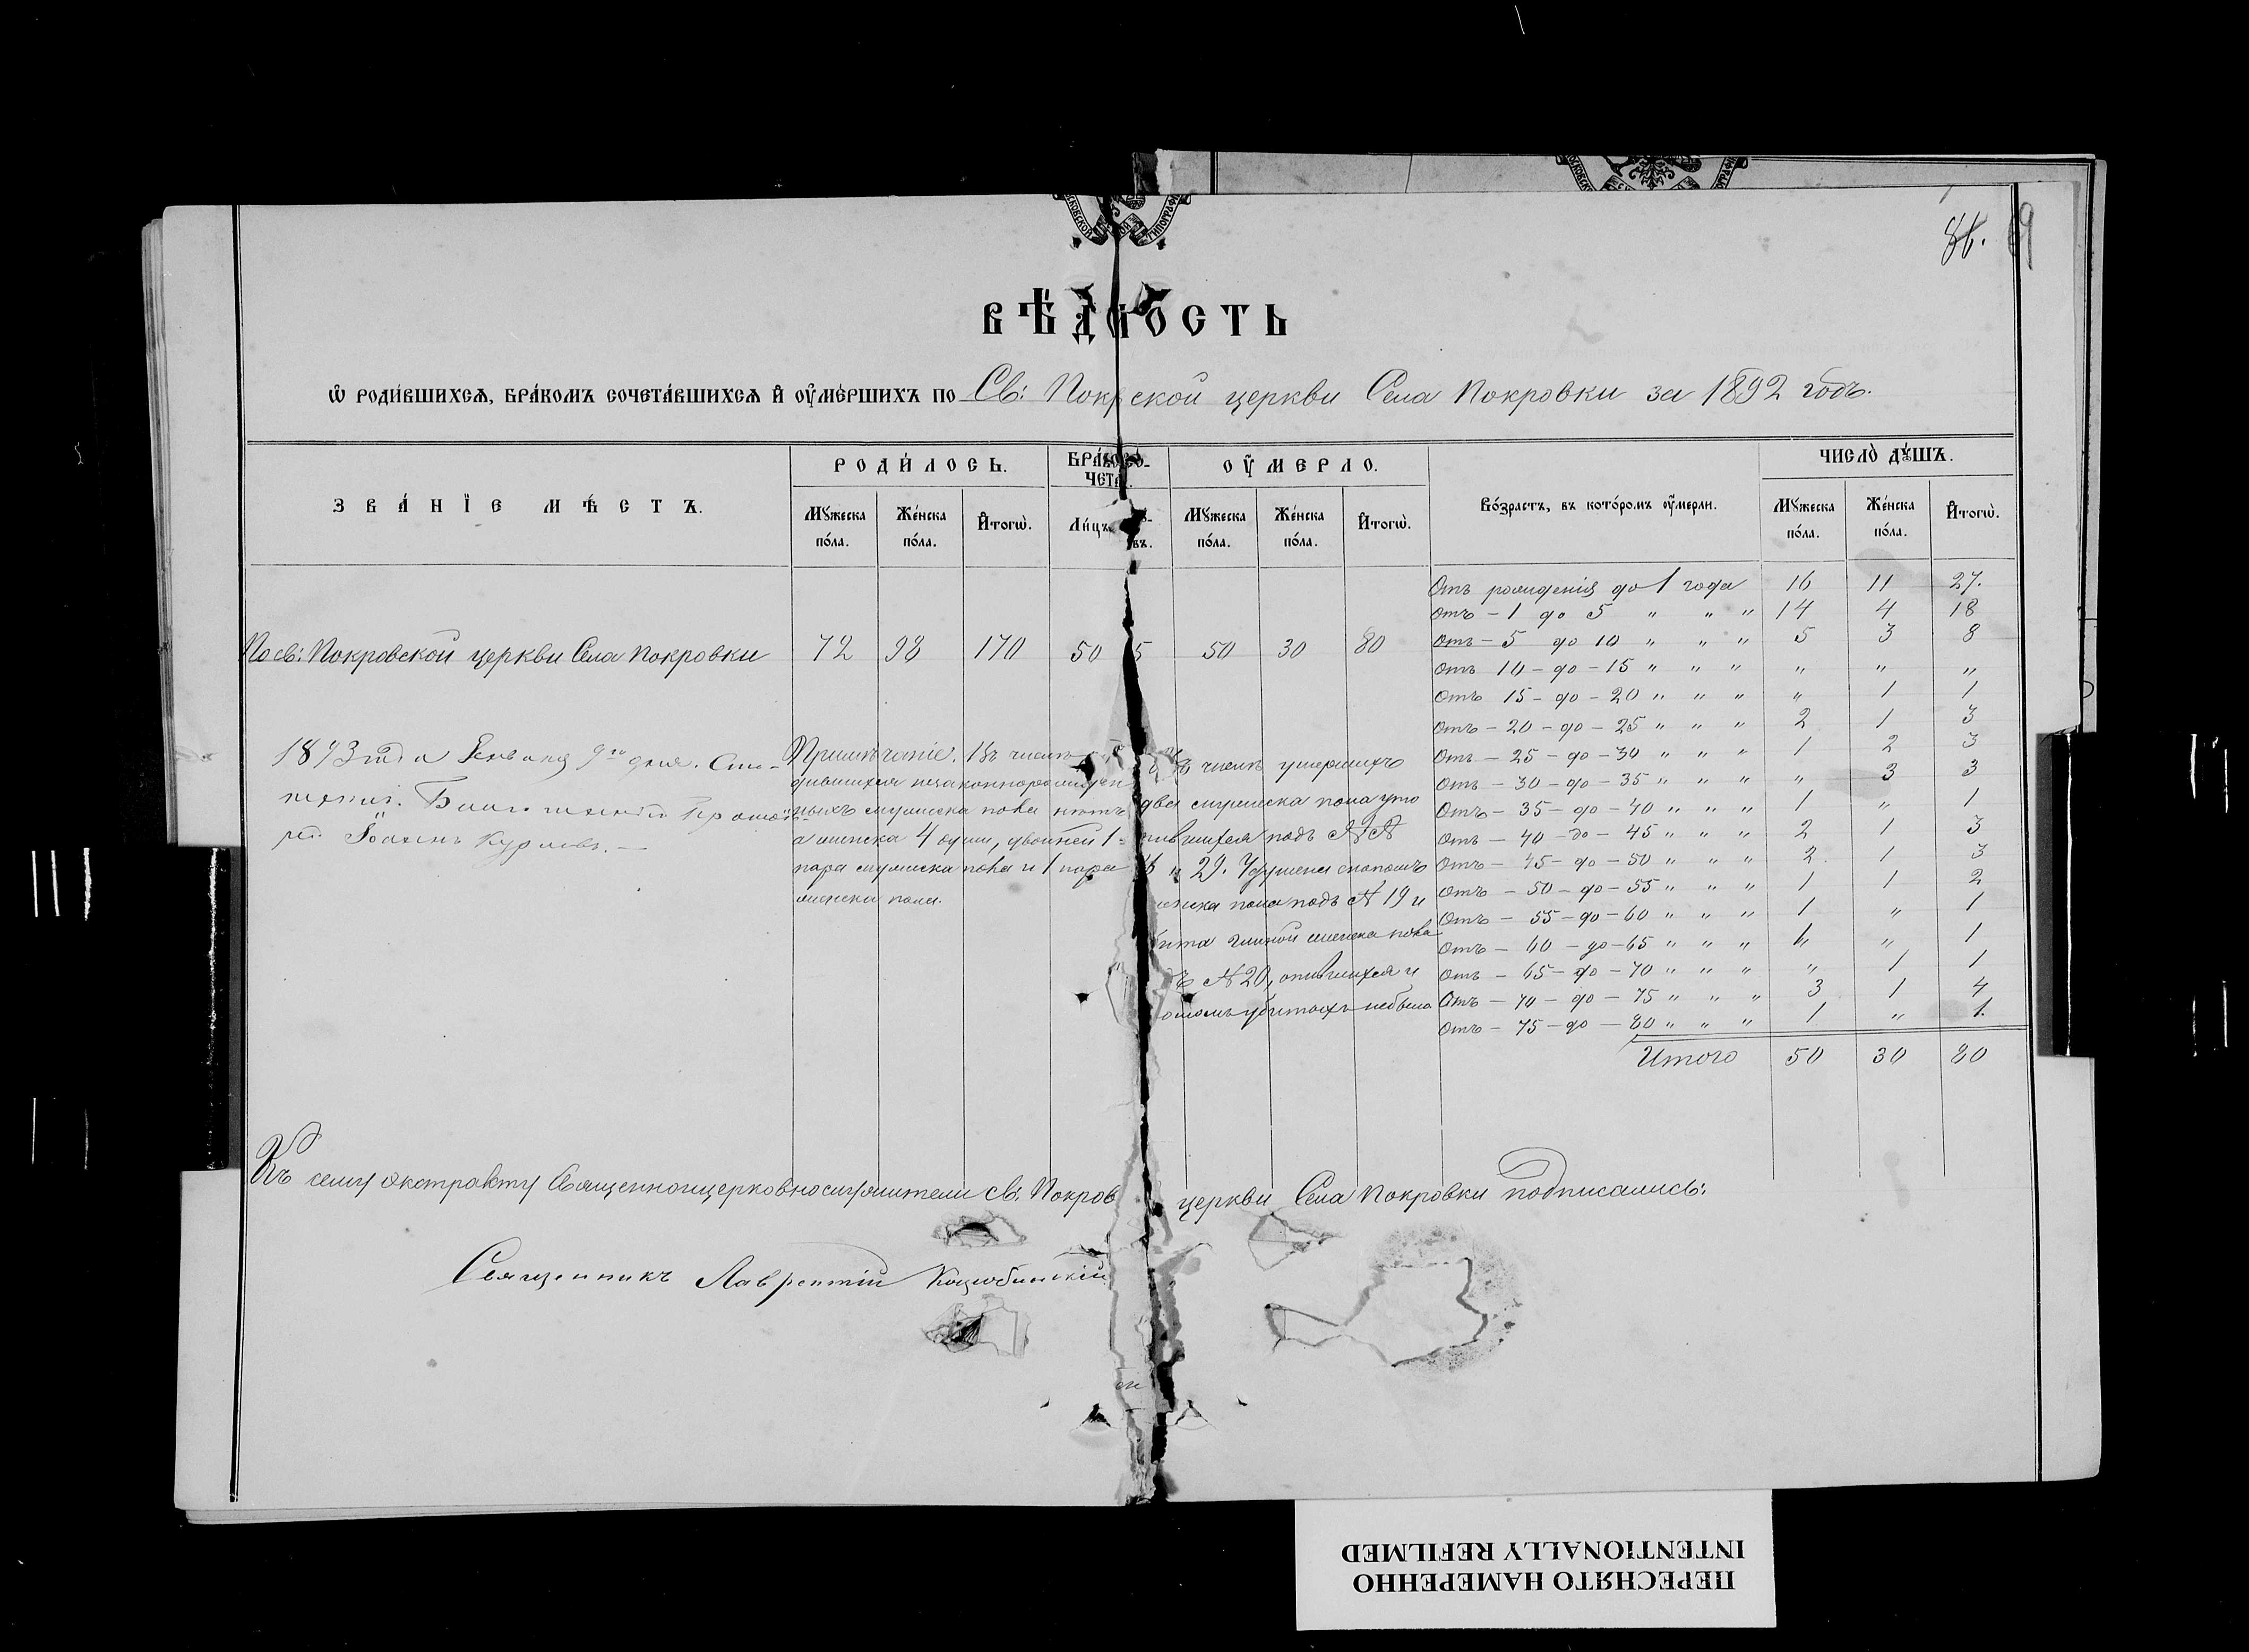 86. 9
ВѢДОМОСТЬ
Ѡ РОДИВШИХСѦ, БРАКОМЪ СОЧЕТАВШИХСѦ И ОУМЕРШИХЪ ПО Св: Покрской церкви Села Покровки за 1892 годъ.
ЗВАНІЕ МѢСТЪ. РОДИЛОСЬ. ОУМЕРЛО. Возрастъ, въ которомъ оумерли. ЧИСЛО ДꙋШЪ.
Мꙋжеска пола. Женска пола. Итогѡ. Лицъ Мꙋжеска пола. Женска пола. Итогѡ. Мꙋжеска пола. Женска пола. Итогѡ.
По св: Покровской церкви Села Покровки 72 98 170 50 5 50 30 80
Отъ рожденія до 1 года 16 11 27.
Отъ – 1 до 5 " " " 14 4 18
Отъ – 5 до 10 " " " 5 3 8
Отъ 10 – до – 15 " " " " " "
Отъ 15 – до – 20 " " " " 1 1
Отъ – 20 – до – 25 " " " 2 1 3
Отъ – 25 – до – 30 " " " 1 2 3
Отъ – 30 – до – 35 " " " " 3 3
Отъ – 35 – до – 40 " " " 1 " 1
Отъ – 40 – до – 45 " " " 2 1 3
Отъ – 45 – до – 50 " " " 2 1 3
Отъ – 50 – до – 55 " " " 1 1 2
Отъ – 55 – до – 60 " " " 1 " 1
Отъ – 60 – до – 65 " " " 1 " 1
Отъ – 65 – до – 70 " " " " 1 1
Отъ – 70 – до – 75 " " " 3 1 4
Отъ – 75 – до – 80 " " " 1 " 1.
Итого 50 30 80
1893 года Января 9го дня.
Іоаннъ
Примѣчаніе. Въ числѣ
дившихся незаконнорожден
ныхъ мужеска пола нѣтъ
а женска 4 души, двойней 1=
пара мужеска пола и 1 пара
женска пола.
числѣ умершихъ
два мужеска пола уто
пившихся подъ №№
и 29. Удушена снопомъ
женска пола подъ № 19 и
бита глиной женска пола
дъ № 20, опившихся и
убитыхъ небыло
Къ сему экстракту Священноицерковнослужители св: Покров церкви Села Покровки подписались:
Священникъ Лаврентій Коцюбинскій
ПЕРЕСНЯТО НАМЕРЕННО
INTENTIONALLY REFILMED